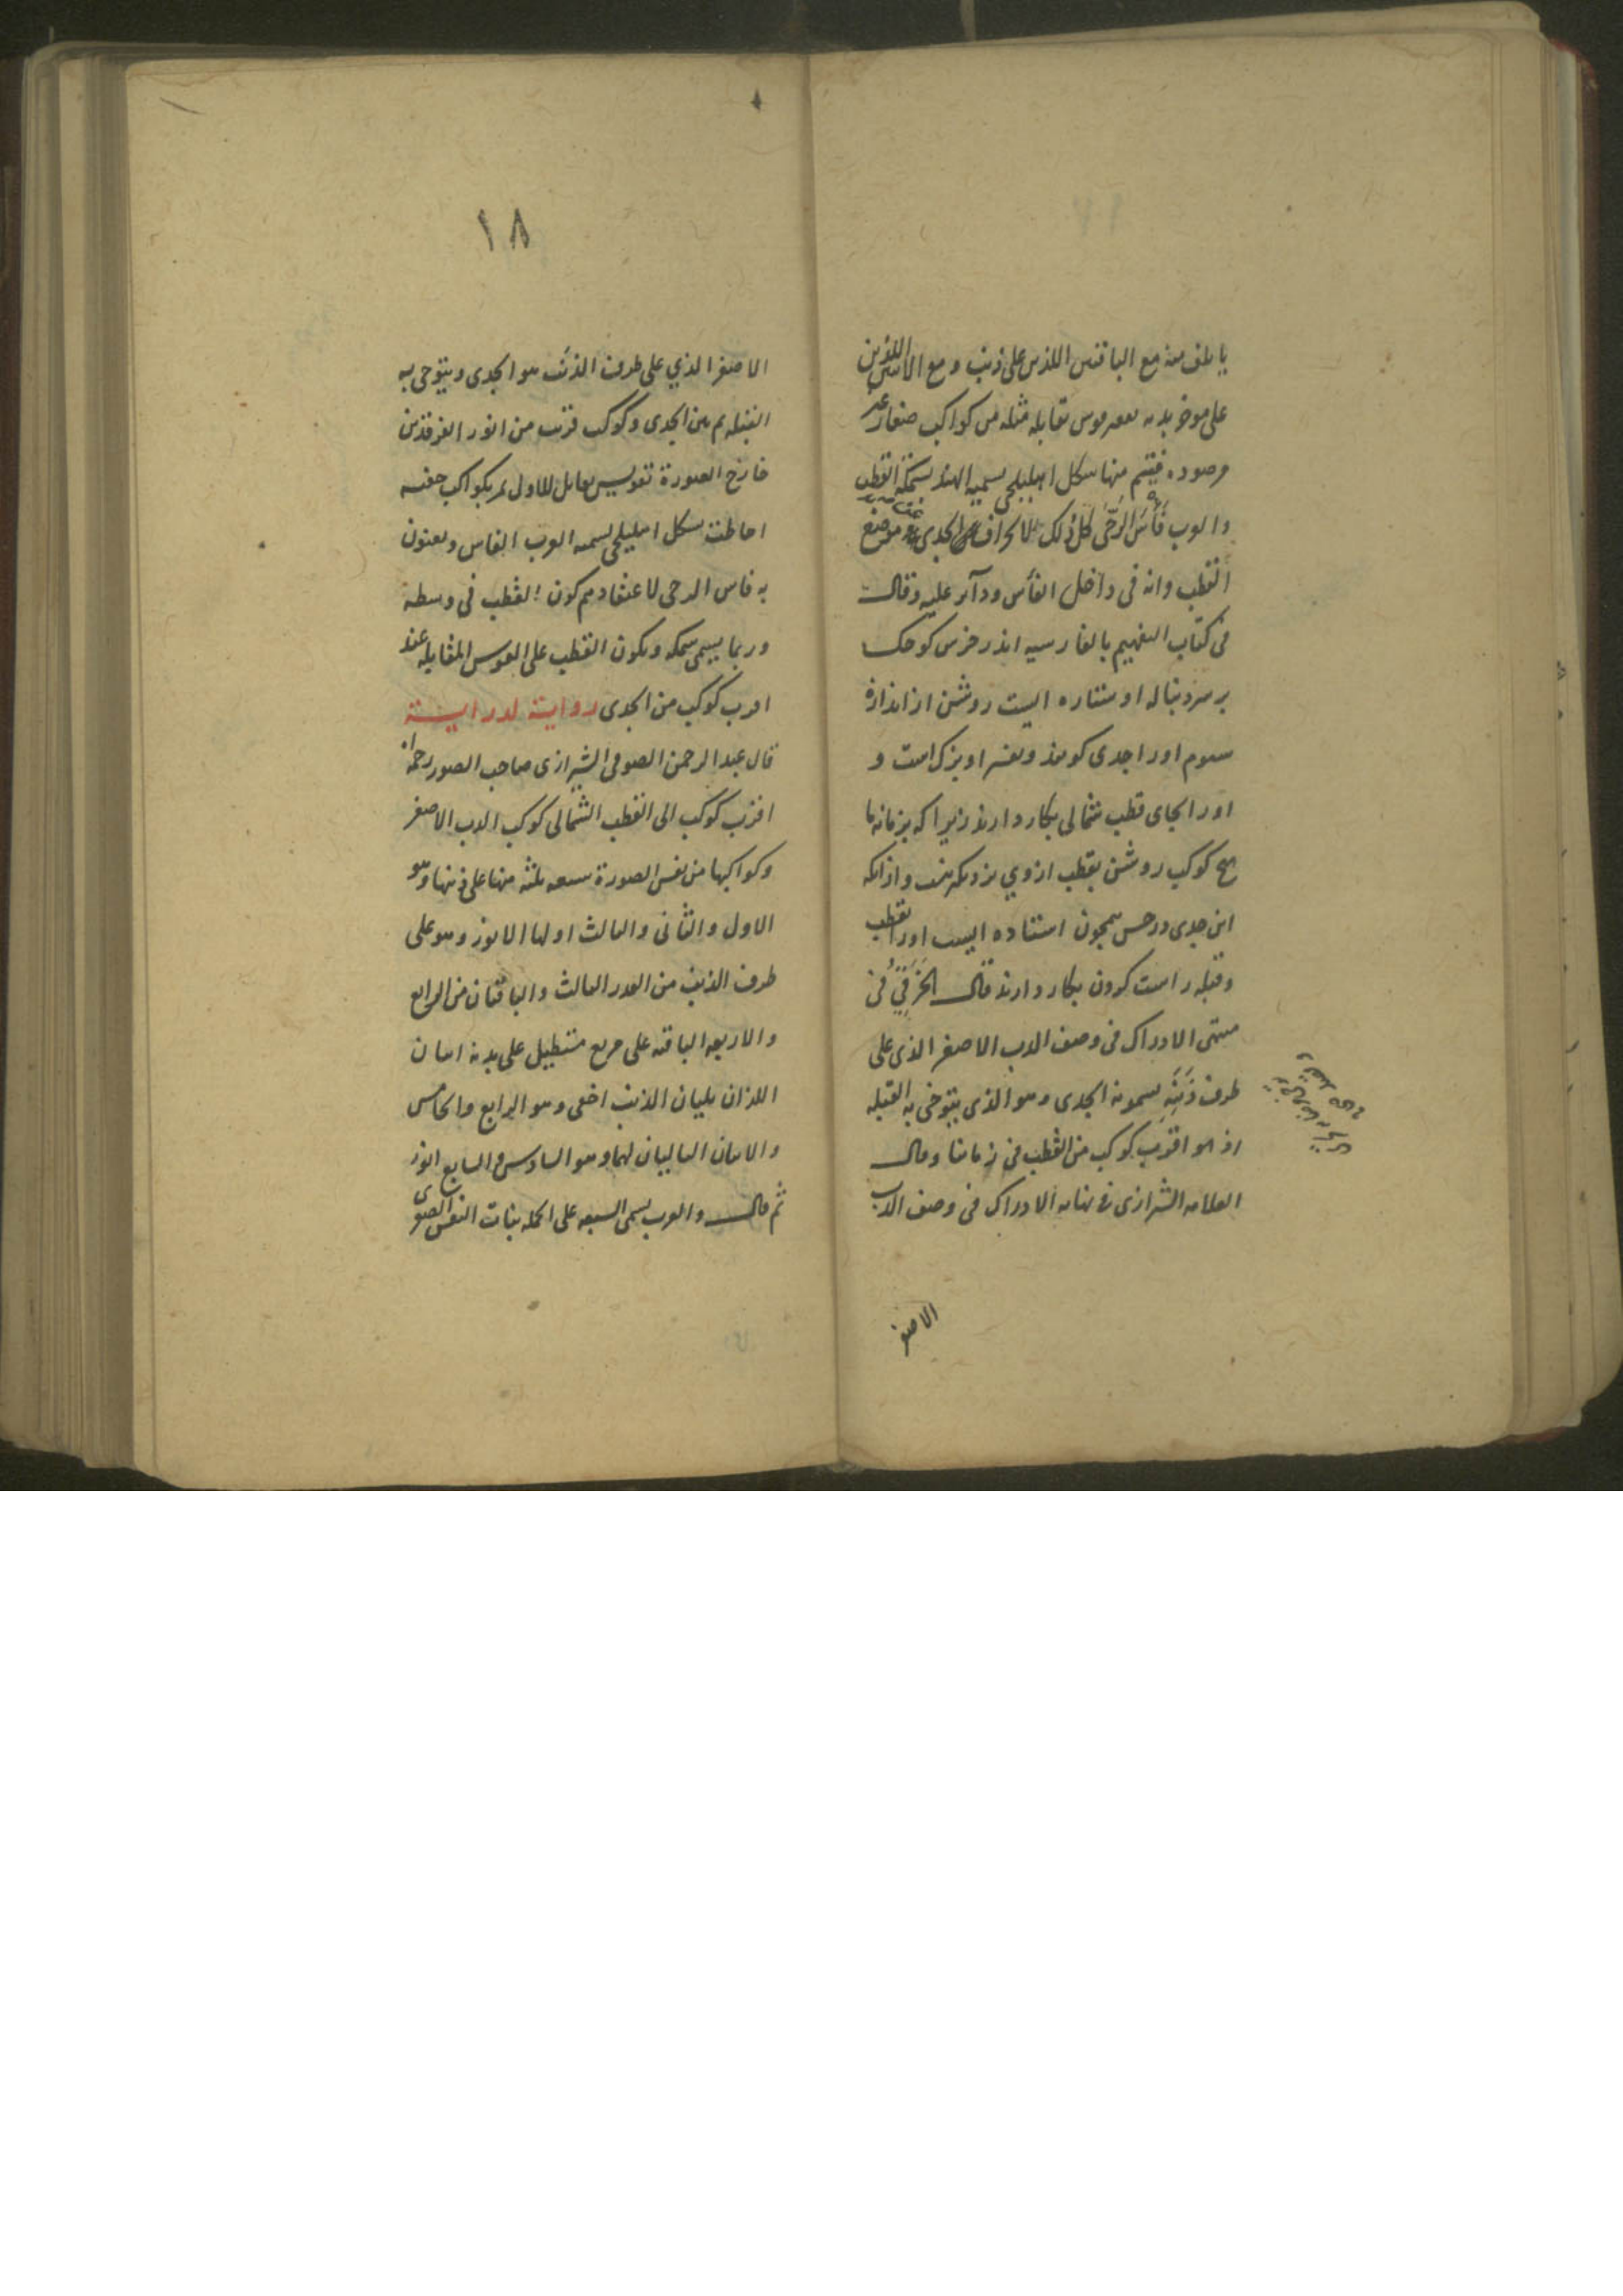 يأتلف منه مع الباقيين اللذين على ذنبه ومع الاثنين اللذين
على مؤخر بدنه تقويس يقابله مثله من كواكب صغار غير
مرصودة فيتم منها شكل اهليلجي يسميه الهند سمكة القطب
والعرب فأس الرحى كل ذلك لانحراف الجدى عن موضع
القطب وانه في داخل الفأس ودائر عليه وقال
في كتاب التفهيم بالفارسيه اندر خرس كوچك
بر سر دنبال او ستاره ايست روشن از اندازة
سوم اورا جدى كويند و او بزرك است و
اورا بجاى قطب شمالى بكار دارند زيرا كه بزمانه ما
هيچ كوكب روشن بقطب ازوي نزديكتر نيست وازآنكه
اين جدى در حس همچون استاده ايست اورا بقطب
وقبله راست كردن بكار دارند قال الخرقي في
منتهى الادراك في وصف الدب الاصغر الذى على
طرف ذنبه يسمونه الجدى وهو الذى يتوخى به القبله
اذ هو اقرب كوكب من القطب في زماننا وقال
العلامه الشيرازى في نهايه الادراك في وصف الدب
الاصغر
١٨
الاصغر الذي على طرف الذنب هو الجدى ويتوخى به
القبله ثم بين الجدى وكوكب قرب من انور الفرقدين
خارج الصورة تقويس مقابل للاول ثم بكواكب خفيه
احاطت بشكل اهليلجي يسميه العرب الفاس ويعنون
به فاس الرحى لاعتقادهم كون القطب في وسطه
وربما يسمى سمكه ويكون القطب على القوس المقابله عند
اقرب كوكب من الجدى رواية لدراية
قال عبد الرحمن الصوفى الشيرازى صاحب الصور رحمه الله
اقرب كوكب الى القطب الشمالى كوكب الدب الاصغر
وكواكبها من نفس الصورة سبعه ثلثه منها على ذنبها وهو
الاول والثانى والثالث اولها الانور وهو على
طرف الذنب من القدر الثالث والباقيان من الرابع
والاربعه الباقيه على مربع مستطيل على بدنه اثنان
اللذان يليان الذنب اخفى وهو الرابع والخامس
والاثنان التاليان لهما وهو السادس والسابع انور
ثم قال والعرب يسمى السبعه على الجمله بنات النعش الصغرى